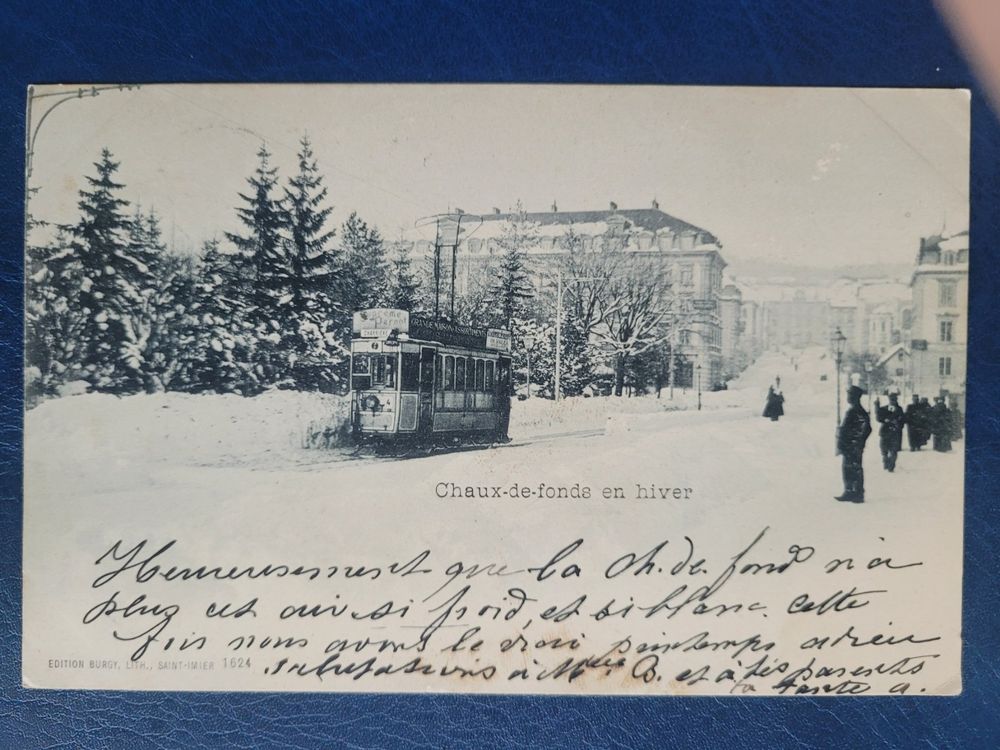 Chaux-de-fonds en hiver
Heureusement que la Ch. de. fond n'a
plus cet air si froid, et si blanc. Cette
fois nous avons le vrai printemps adieu
salutations à Mlle B. et à tes parents
ta tante a.
EDITION BURGY, LITH., SAINT-IMIER 1624